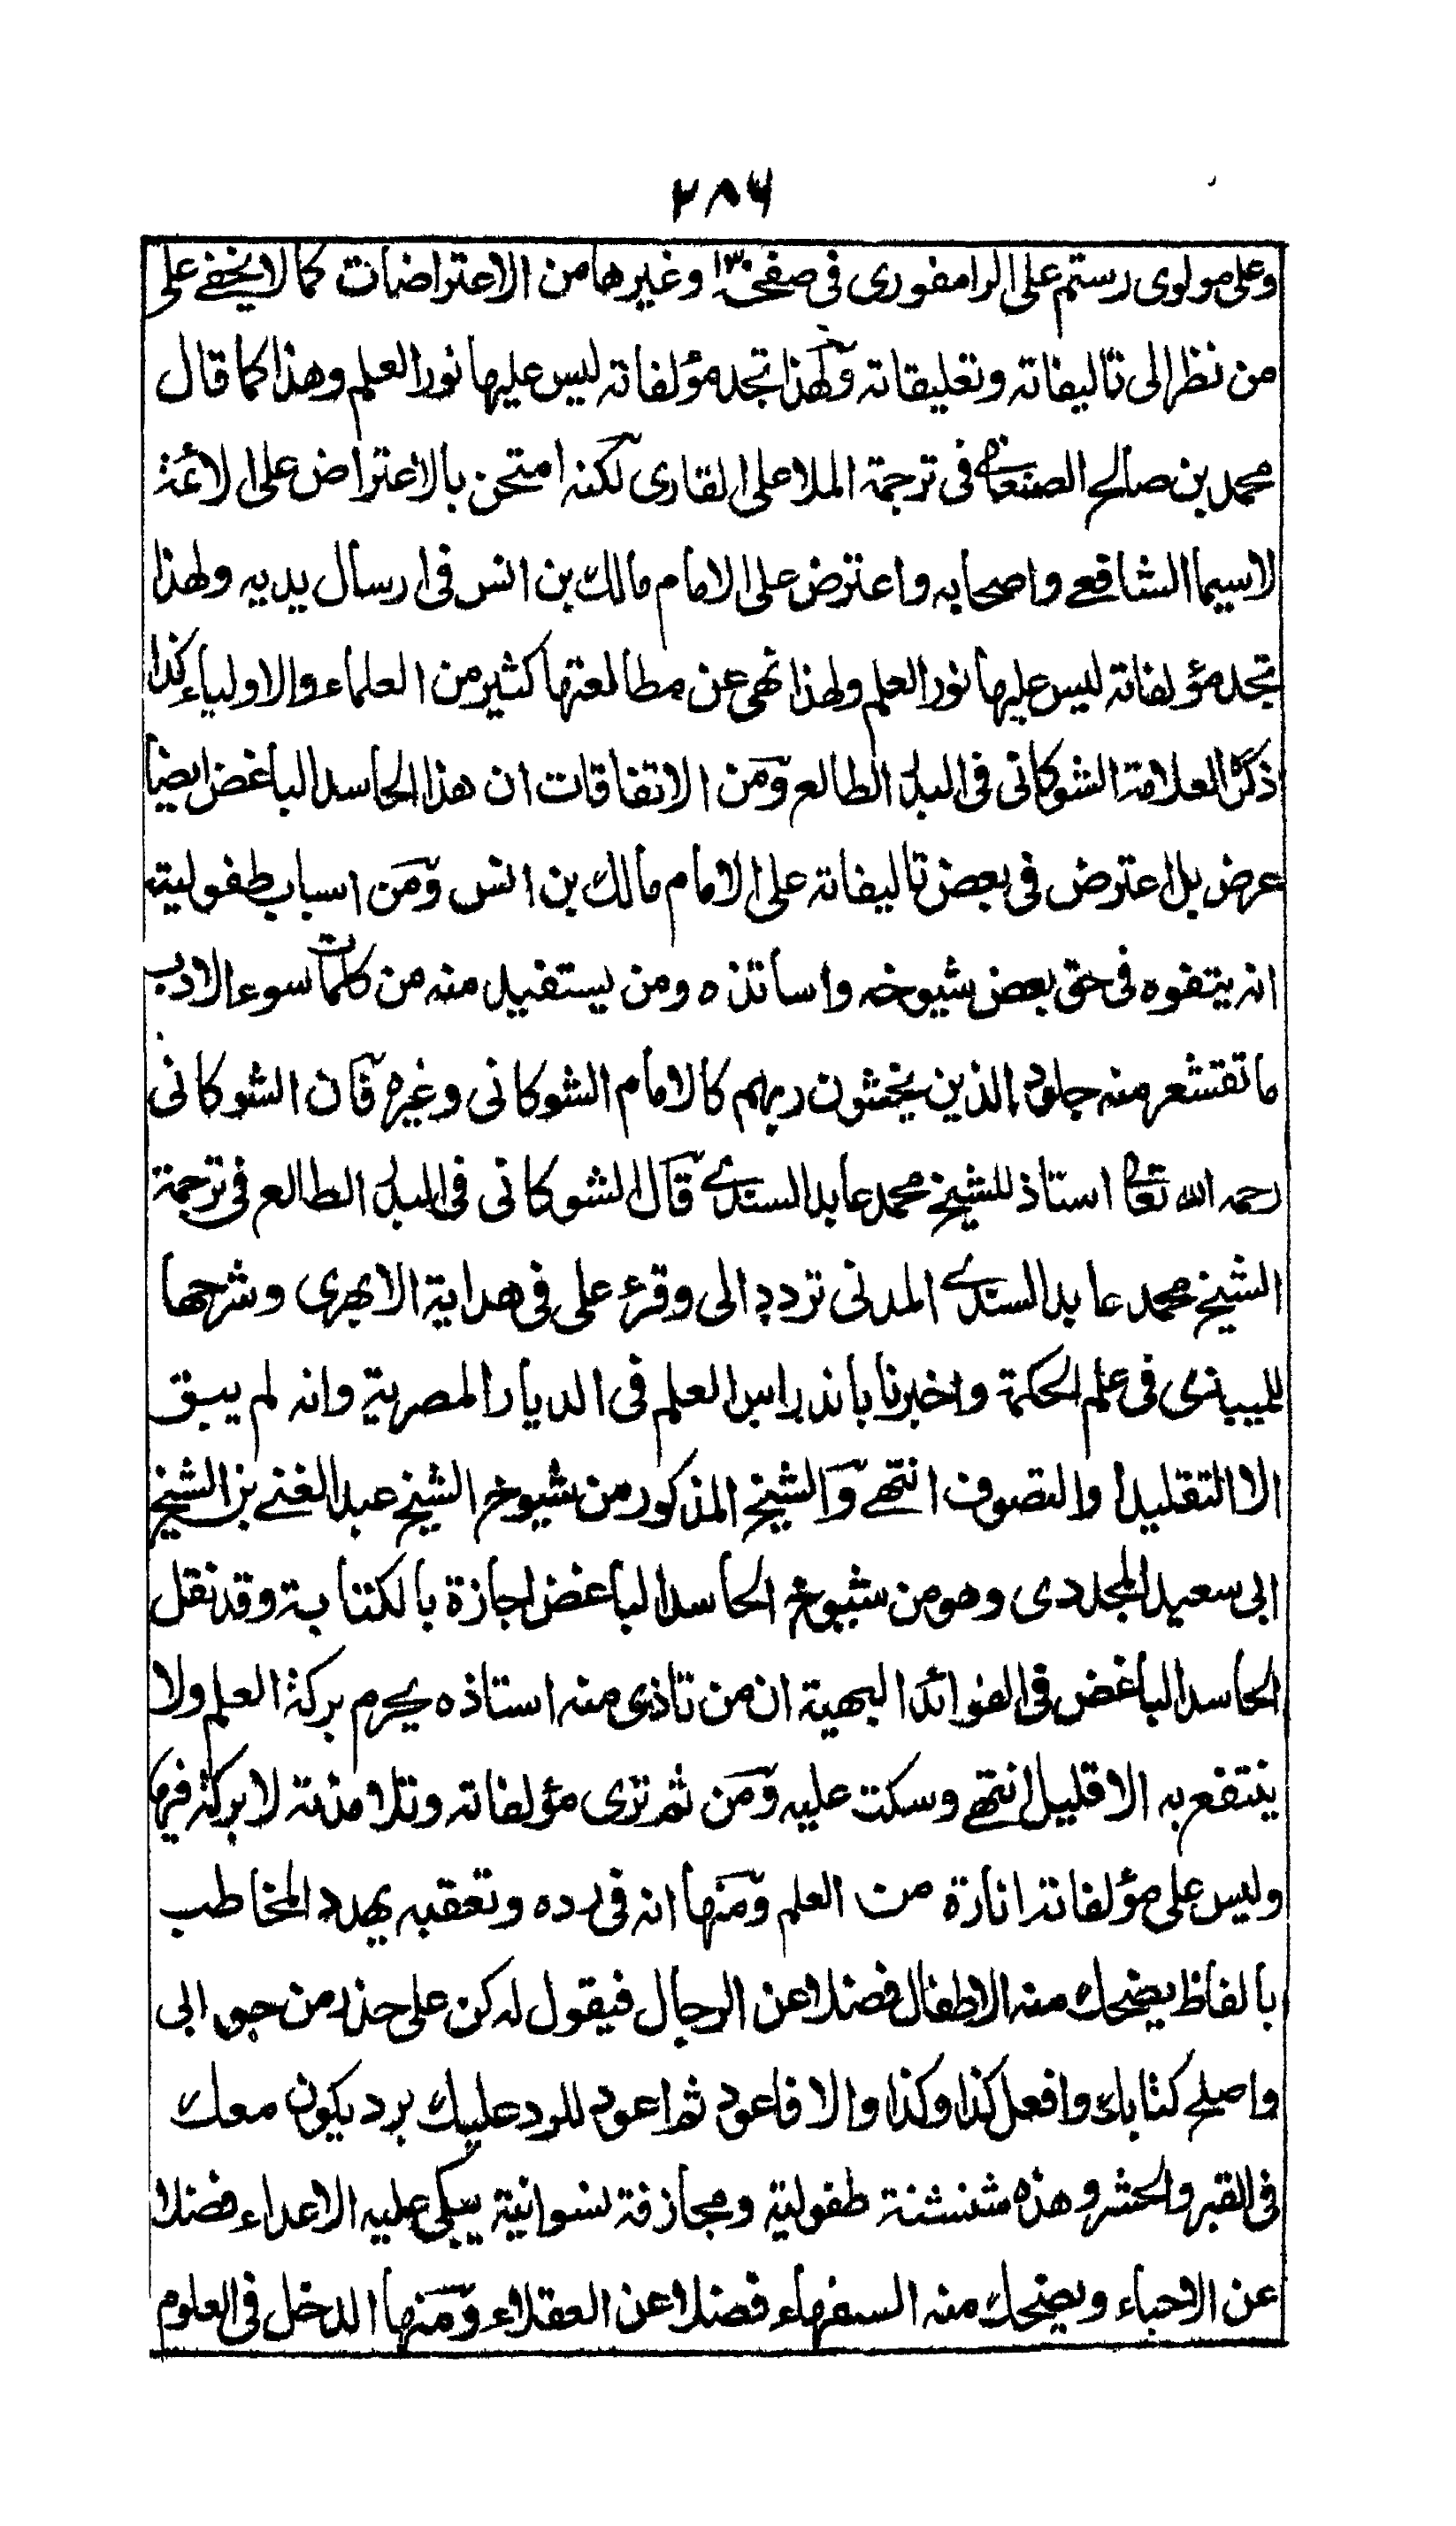 ٢٨٦
وعلى مولوى رستم على الرامفورى فى صفحة ١٣٠ وغيرها من الاعتراضات كما لا يخفے على
من نظر الى تاليفاته وتعليقاته ولهذا تجد مؤلفاته ليس عليها نور العلم وهذا كما قال
محمد بن صالح الصنعانے فى ترجمة الملا على القارى لكنه امتحن بالاعتراض على الائمة
لا سيما الشافعے واصحابه واعترض على الامام مالك بن انس فى ارسال يديه ولهذا
تجد مؤلفاته ليس عليها نور العلم ولهذا نهى عن مطالعتها كثير من العلماء والاولياء كذا
ذكره العلامة الشوكانى فى البدر الطالع ومن الاتفاقات ان هذا الحاسد الباغض ايضا
عرض بل اعترض فى بعض تاليفاته على الامام مالك بن انس ومن اسباب طفوليته
انه يتفوه فى حق بعض شيوخه واساتذه ومن يستفيد منه من كلمات سوء الادب
ما تقشعر منه جلود الذين يخشون ربهم كالامام الشوكانى وغيره فان الشوكانى
رحمه الله تعالى استاذ للشيخ محمد عابد السندے قال الشوكانى فى البدر الطالع فى ترجمة
الشيخ محمد عابد السندے المدنى تردد الى وقرء على فى هداية الابهرى وشرحها
للميبذى فى علم الحكمة واخبرنا باندراس العلم فى الديار المصرية وانه لم يبق
الا التقليد والتصوف انتهے والشيخ المذكور من شيوخ الشيخ عبد الغنے بن الشيخ
ابى سعيد المجددى وهو من شيوخ الحاسد الباغض اجازة بالكتابة وقد نقل
الحاسد الباغض فى الفوائد البهية ان من تاذى منه استاذه يحرم بركة العلم ولا
ينتفع به الا قليل انتهے وسكت عليه ومن ثم ترى مؤلفاته وتلامذته لا بركة فيها
وليس على مؤلفاته انارة من العلم ومنها انه فى رده وتعقبه يهدد المخاطب
بالفاظ يضحك منه الاطفال فضلا عن الرجال فيقول له كن على حذر من جواب
واصلح كتابك وافعل كذا وكذا والا فاعود ثم اعود للرد عليك برد يكون معك
فى القبر والحشر وهذه شنشنة طفولية ومجازفة نسوانية يبكى عليه الاعداء فضلا
عن الاحباء ويضحك منه السفهاء فضلا عن العقلاء ومنها الدخل فى العلوم